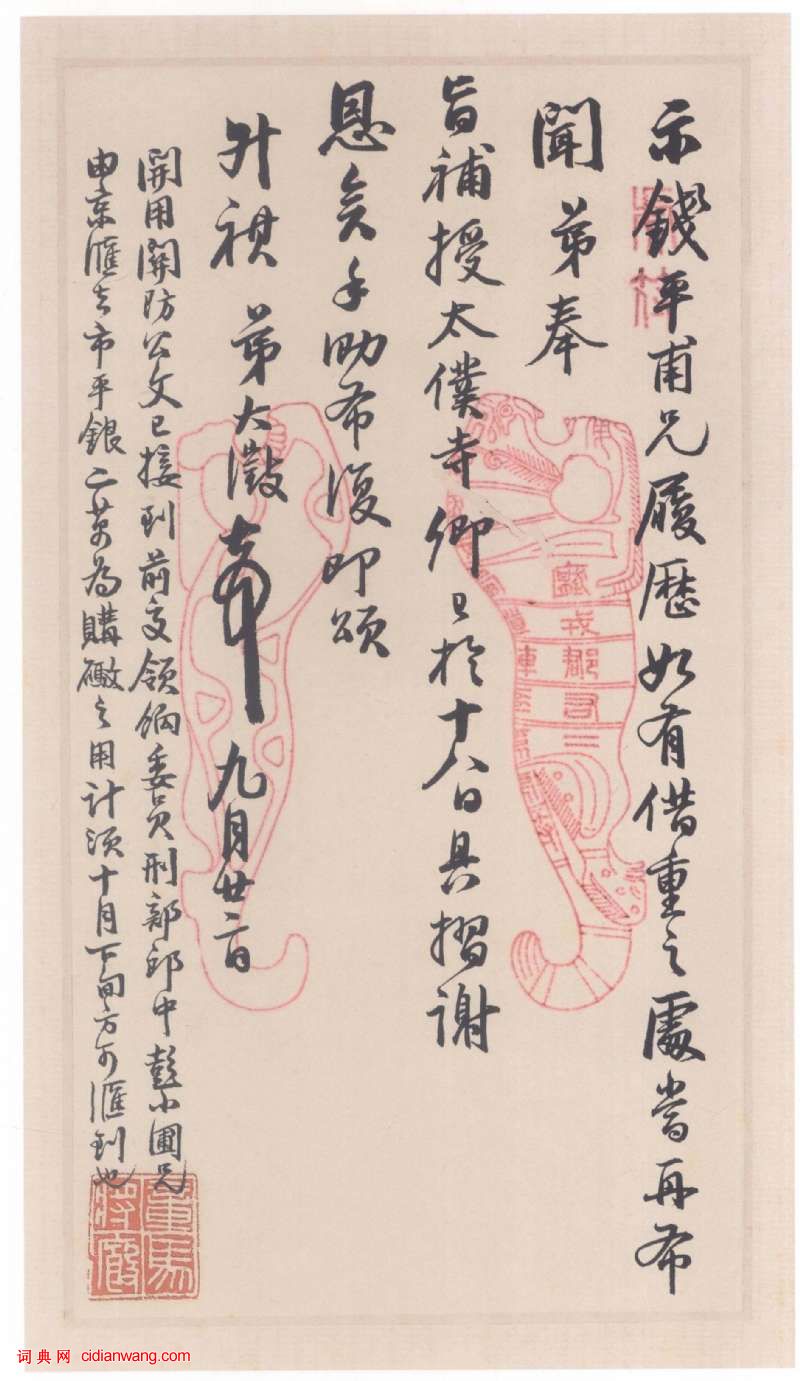 示錢平甫兄履歷如有借重之處當再布
聞弟奉
旨補授太僕寺卿已於十八日具摺謝
恩矣手泐布復即頌
升祺 弟大澂 九月廿二日
開用關防公文已接到前交領餉委員刑部郎中彭小圃兄
由京匯去市平銀二萬為購礮之用計須十月下旬方可匯到也
詞典网 cidianwang.com